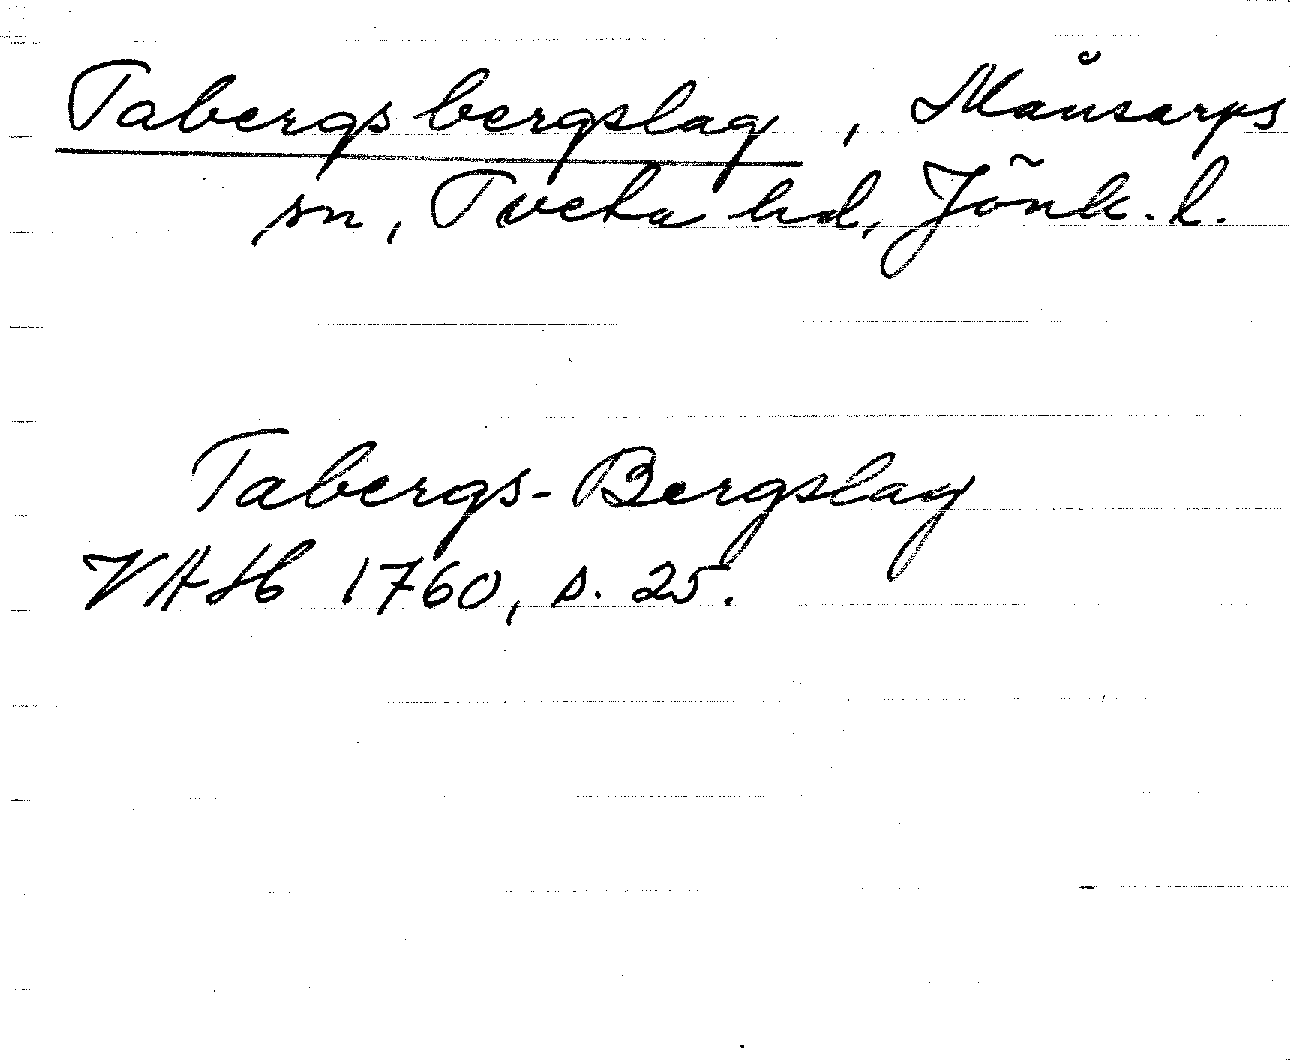 Tabergs bergslag, Månsarps
sn, Tveta hd, Jönk. l.
Tabergs-Bergslag
VAH 1760, s. 25.